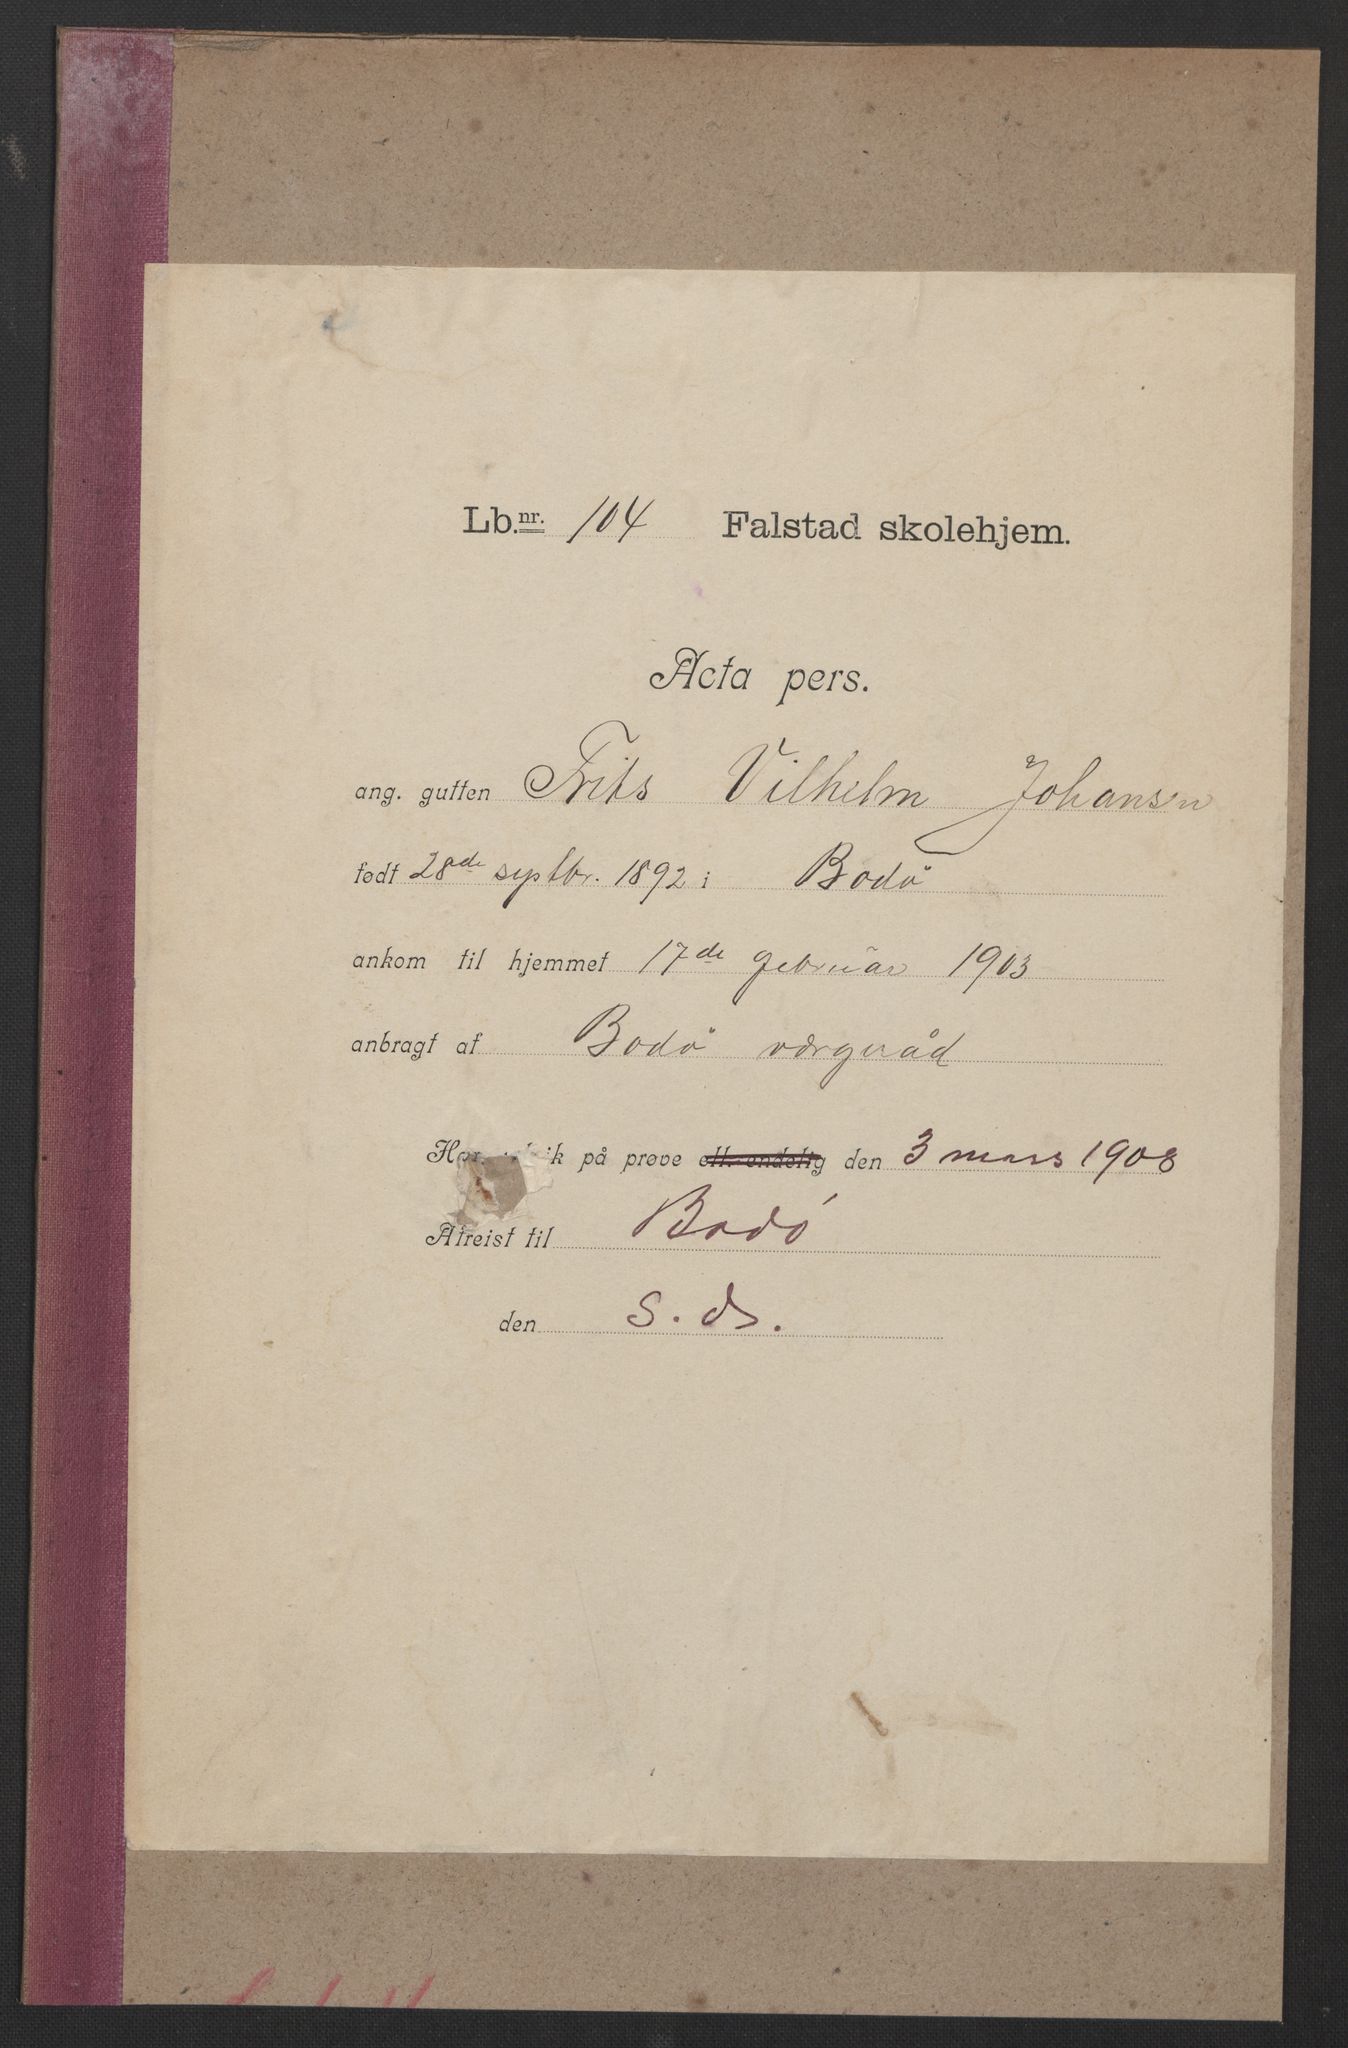 Lb.nr. 104 Falstad skolehjem.
Acta pers.
ang. gutten Frits Vilhelm Johansen
født 28de septbr. 1892 i Bodö
ankom til hjemmet 17de februar 1903
anbragt af Bodö vergeråd
på prøve ell. endelig den 3 mars 1908
Afreist til Bodö
den S. ds.